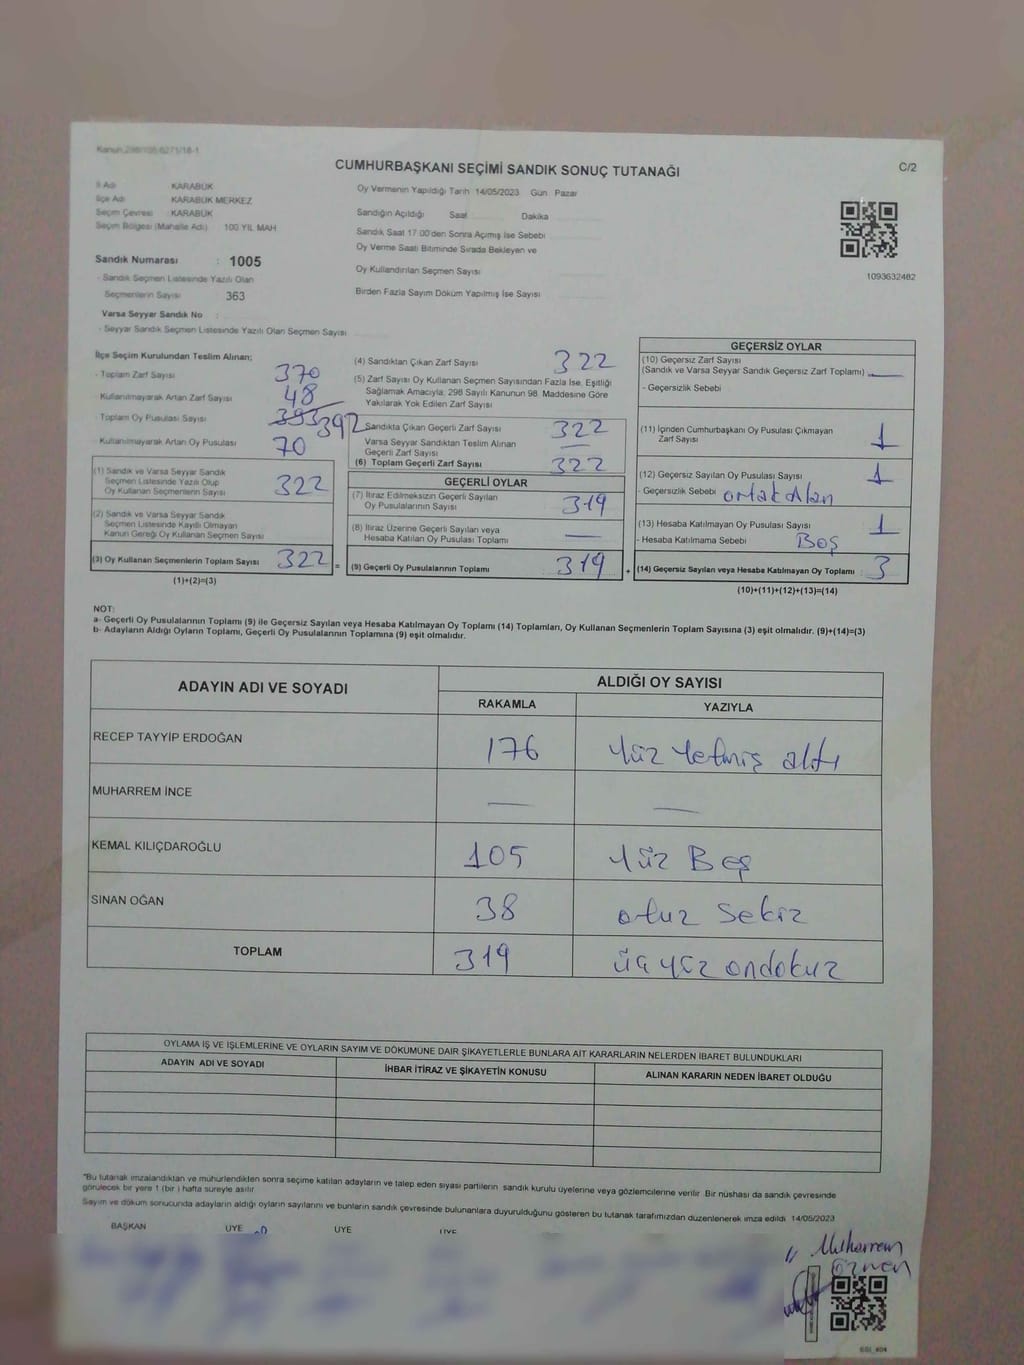 Kanun 298/105 6271/18-1
CUMHURBAŞKANI SEÇİMİ SANDIK SONUÇ TUTANAĞI
C/2
İl Adı KARABÜK
İlçe Adı KARABÜK MERKEZ
Seçim Çevresi : KARABÜK
Seçim Bölgesi (Mahalle Adı) 100 YIL MAH
Sandık Numarası : 1005
- Sandık Seçmen Listesinde Yazılı Olan
Seçmenlerin Sayısı 363
Varsa Seyyar Sandık No :
- Seyyar Sandık Seçmen Listesinde Yazılı Olan Seçmen Sayısı
Oy Vermenin Yapıldığı Tarih 14/05/2023 Gün Pazar
Sandığın Açıldığı Saat Dakika
Sandık Saat 17:00'den Sonra Açımış İse Sebebi
Oy Verme Saati Bitiminde Sırada Bekleyen ve
Oy Kullandırılan Seçmen Sayısı
Birden Fazla Sayım Döküm Yapılmış İse Sayısı
1093632482
İlçe Seçim Kurulundan Teslim Alınan;
- Toplam Zarf Sayısı 370
- Kullanılmayarak Artan Zarf Sayısı 48
- Toplam Oy Pusulası Sayısı 393 392
- Kullanılmayarak Artan Oy Pusulası 70
(1) Sandık ve Varsa Seyyar Sandık
Seçmen Listesinde Yazılı Olup
Oy Kullanan Seçmenlerin Sayısı 322
(2) Sandık ve Varsa Seyyar Sandık
Seçmen Listesinde Kayıtlı Olmayan
Kanun Gereği Oy Kullanan Seçmen Sayısı
(3) Oy Kullanan Seçmenlerin Toplam Sayısı 322 =
(1)+(2)=(3)
(4) Sandıktan Çıkan Zarf Sayısı 322
(5) Zarf Sayısı Oy Kullanan Seçmen Sayısından Fazla İse, Eşitliği
Sağlamak Amacıyla, 298 Sayılı Kanunun 98. Maddesine Göre
Yakılarak Yok Edilen Zarf Sayısı
Sandıkta Çıkan Geçerli Zarf Sayısı 322
Varsa Seyyar Sandıktan Teslim Alınan
Geçerli Zarf Sayısı —
(6) Toplam Geçerli Zarf Sayısı 322
GEÇERLİ OYLAR
(7) İtiraz Edilmeksizin Geçerli Sayılan
Oy Pusulalarının Sayısı 319
(8) İtiraz Üzerine Geçerli Sayılan veya
Hesaba Katılan Oy Pusulası Toplamı —
(9) Geçerli Oy Pusulalarının Toplamı 319 +
GEÇERSİZ OYLAR
(10) Geçersiz Zarf Sayısı
(Sandık ve Varsa Seyyar Sandık Geçersiz Zarf Toplamı) —
- Geçersizlik Sebebi
(11) İçinden Cumhurbaşkanı Oy Pusulası Çıkmayan
Zarf Sayısı 1
(12) Geçersiz Sayılan Oy Pusulası Sayısı 1
- Geçersizlik Sebebi ortak Alan
(13) Hesaba Katılmayan Oy Pusulası Sayısı 1
- Hesaba Katılmama Sebebi Boş
(14) Geçersiz Sayılan veya Hesaba Katılmayan Oy Toplamı : 3
(10)+(11)+(12)+(13)=(14)
NOT:
a- Geçerli Oy Pusulalarının Toplamı (9) ile Geçersiz Sayılan veya Hesaba Katılmayan Oy Toplamı (14) Toplamları, Oy Kullanan Seçmenlerin Toplam Sayısına (3) eşit olmalıdır. (9)+(14)=(3)
b- Adayların Aldığı Oyların Toplamı, Geçerli Oy Pusulalarının Toplamına (9) eşit olmalıdır.
ADAYIN ADI VE SOYADI ALDIĞI OY SAYISI
RAKAMLA YAZIYLA
RECEP TAYYİP ERDOĞAN 176 Yüz Yetmiş altı
MUHARREM İNCE — —
KEMAL KILIÇDAROĞLU 105 Yüz Beş
SİNAN OĞAN 38 otuz Sekiz
TOPLAM 319 üçyüz ondokuz
OYLAMA İŞ VE İŞLEMLERİNE VE OYLARIN SAYIM VE DÖKÜMÜNE DAİR ŞİKAYETLERLE BUNLARA AİT KARARLARIN NELERDEN İBARET BULUNDUKLARI
ADAYIN ADI VE SOYADI İHBAR İTİRAZ VE ŞİKAYETİN KONUSU ALINAN KARARIN NEDEN İBARET OLDUĞU
*Bu tutanak imzalandıktan ve mühürlendikten sonra seçime katılan adayların ve talep eden siyasi partilerin sandık kurulu üyelerine veya gözlemcilerine verilir. Bir nüshası da sandık çevresinde
görülecek bir yere 1 (bir ) hafta süreyle asılır
Sayım ve döküm sonucunda adayların aldığı oyların sayılarını ve bunların sandık çevresinde bulunanlara duyurulduğunu gösteren bu tutanak tarafımızdan düzenlenerek imza edildi. 14/05/2023
BAŞKAN ÜYE ÜYE ÜYE
Muharrem
özmen